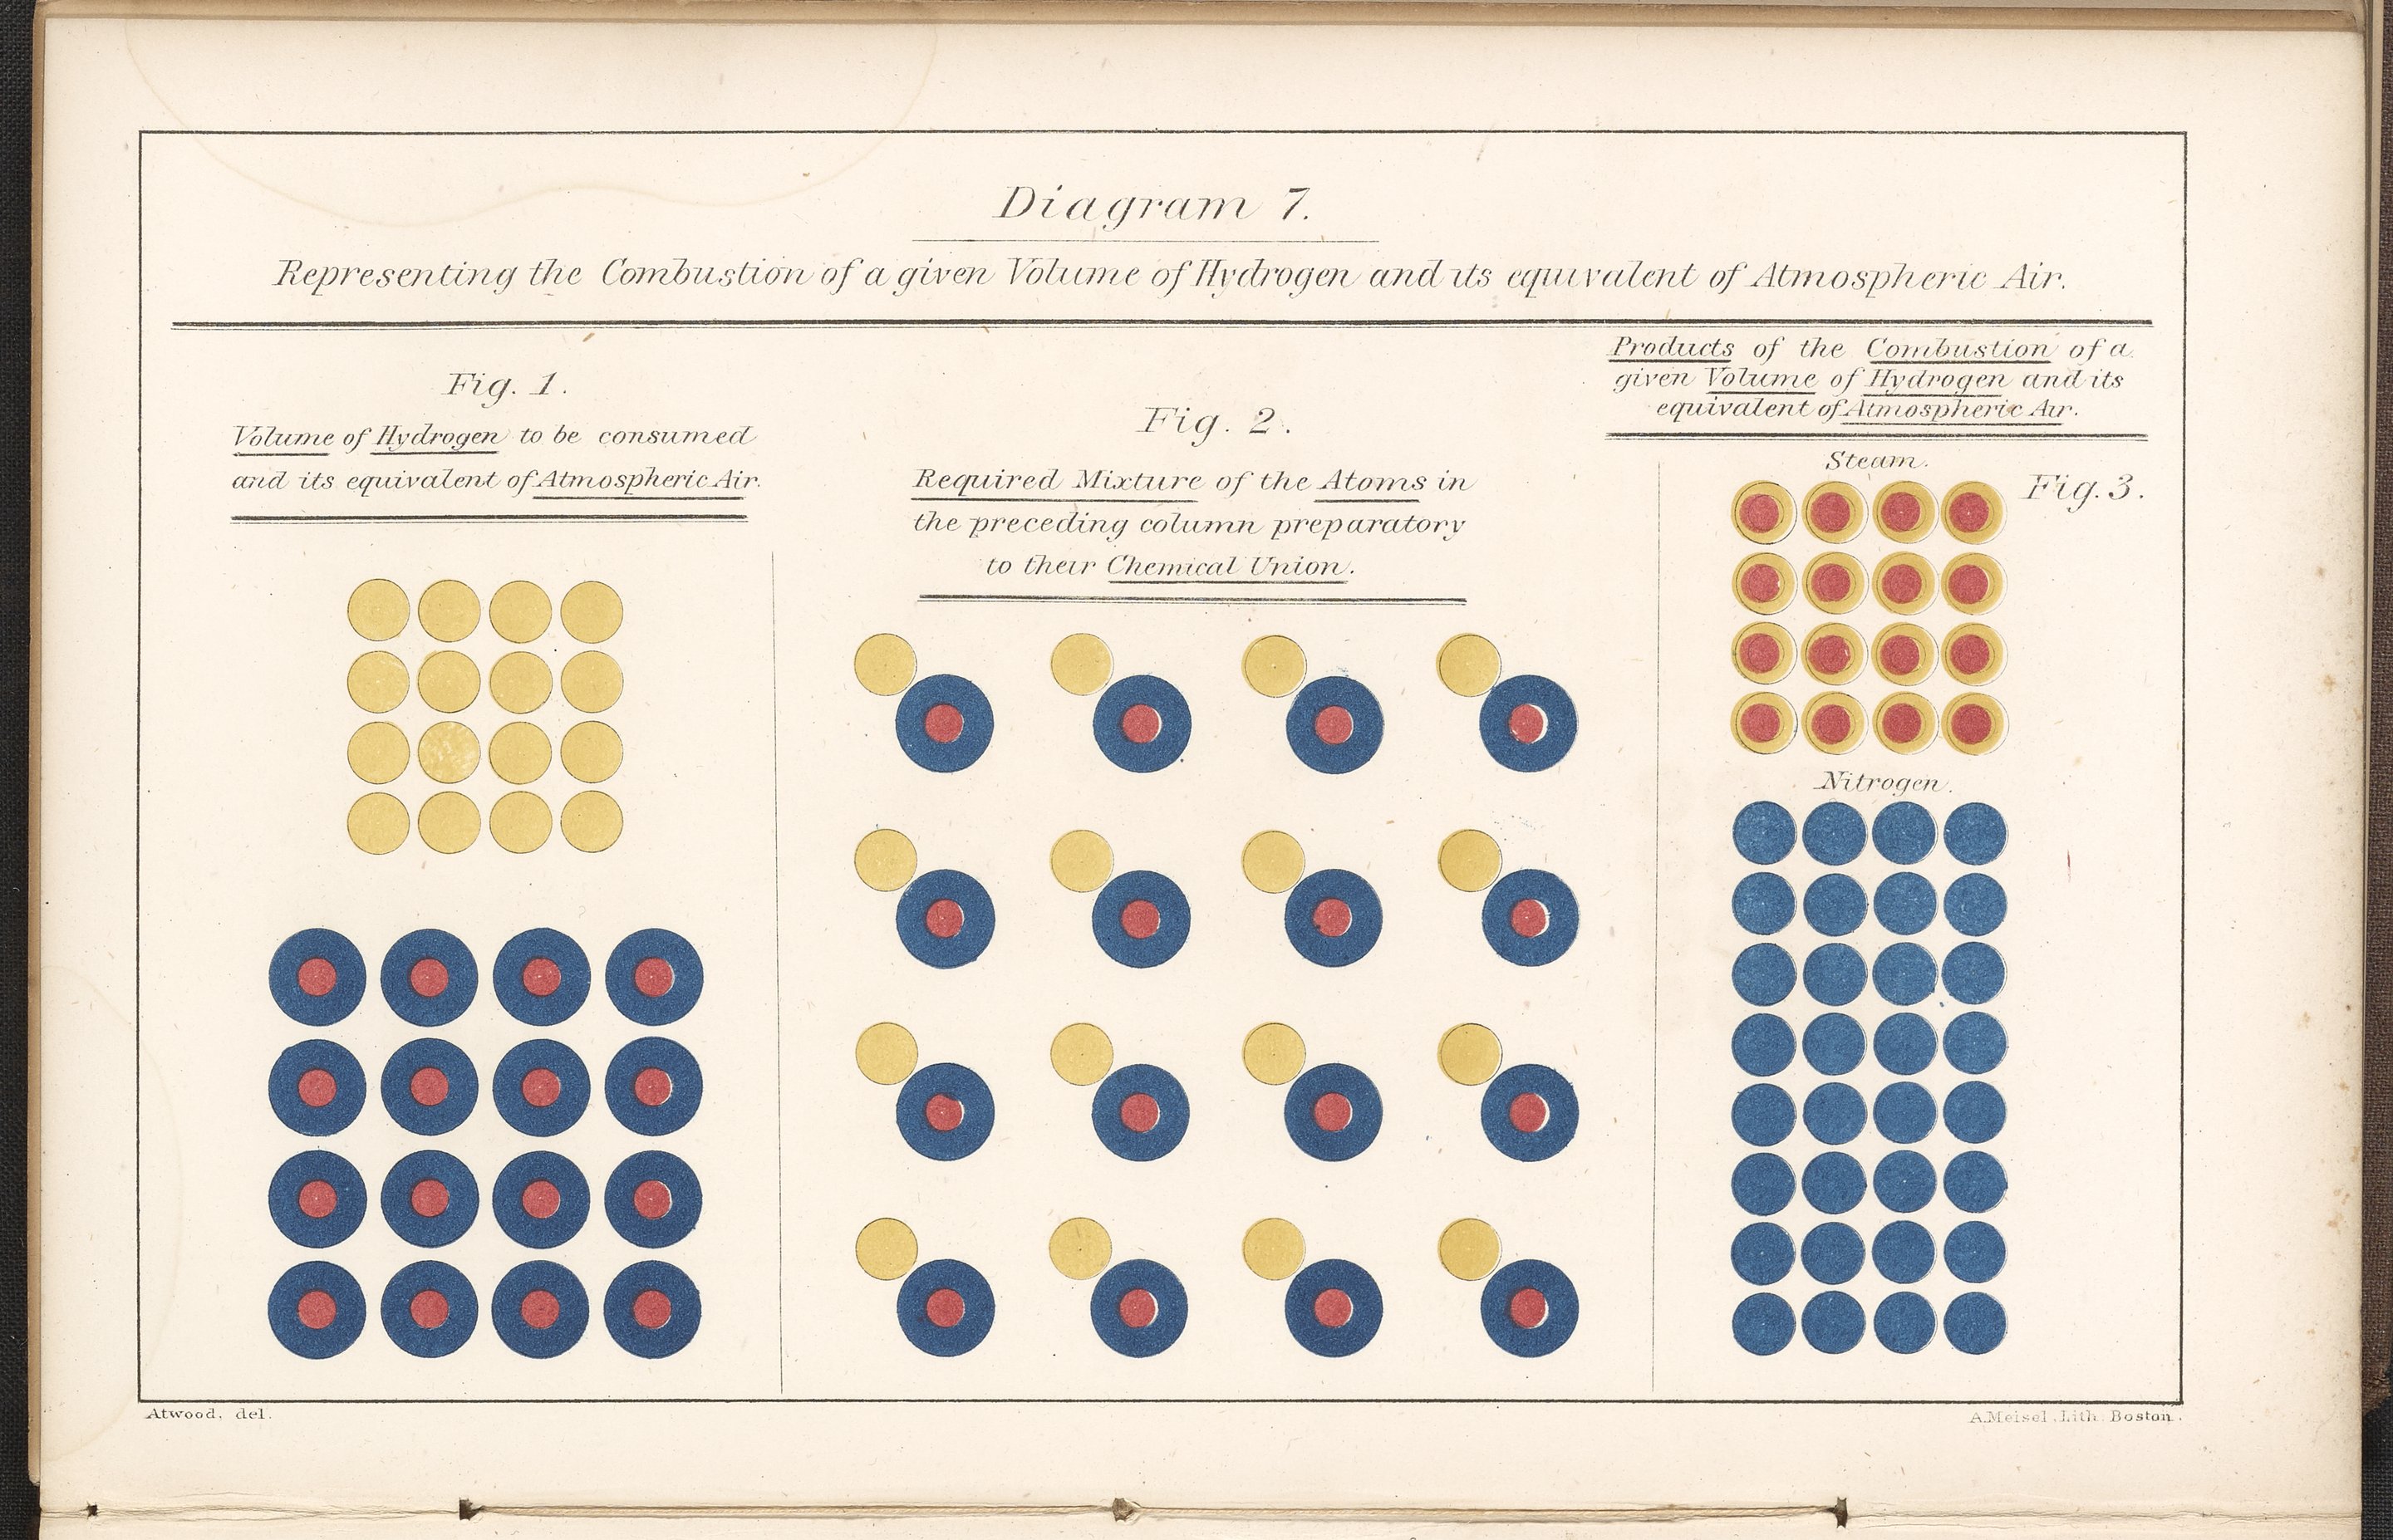 Diagram 7.
Representing the Combustion of a given Volume of Hydrogen and its equivalent of Atmospheric Air.
Fig. 1.
Volume of Hydrogen to be consumed
and its equivalent of Atmospheric Air.
Fig. 2.
Required Mixture of the Atoms in
the preceding column preparatory
to their Chemical Union.
Products of the Combustion of a
given Volume of Hydrogen and its
equivalent of Atmospheric Air.
Steam.
Fig. 3.
Nitrogen.
Atwood, del.
A. Meisel, Lith. Boston.